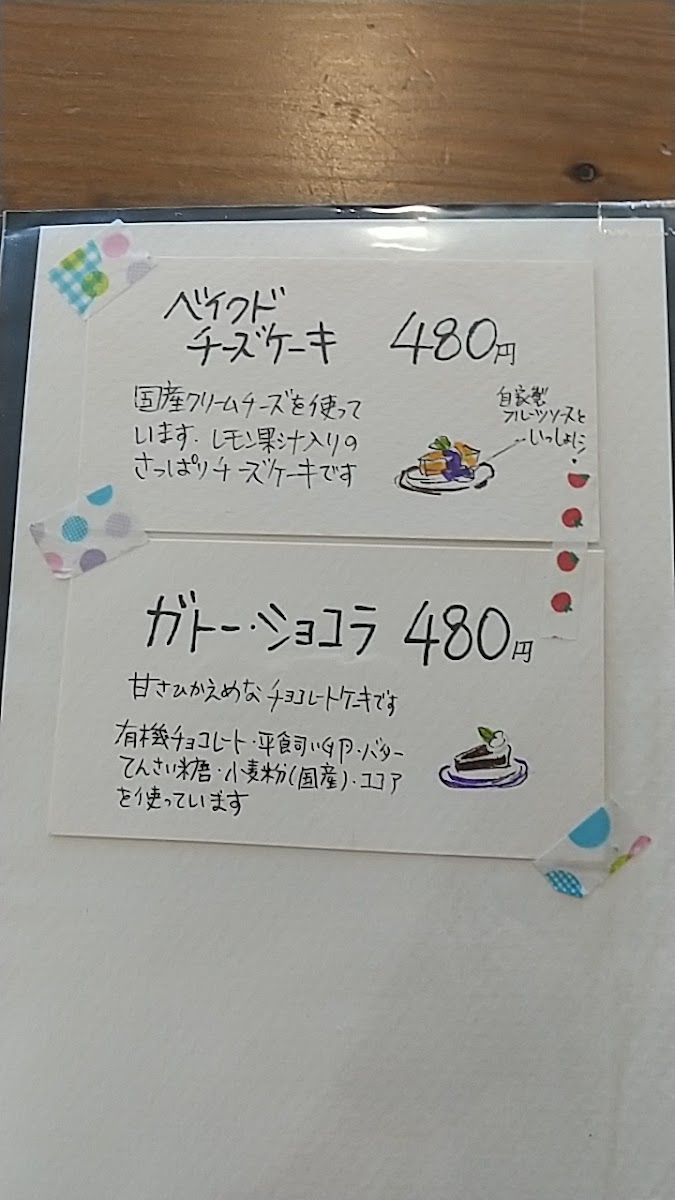 ベイクド
チーズケーキ 480円
国産クリームチーズを使って
います。レモン果汁入りの
さっぱりチーズケーキです
自家製
フルーツソースと
いっしょに
ガトー・ショコラ 480円
甘さひかえめな チョコレートケーキです
有機チョコレート・平飼い卵・バター
てんさい糖・小麦粉(国産)・ココア
を使っています